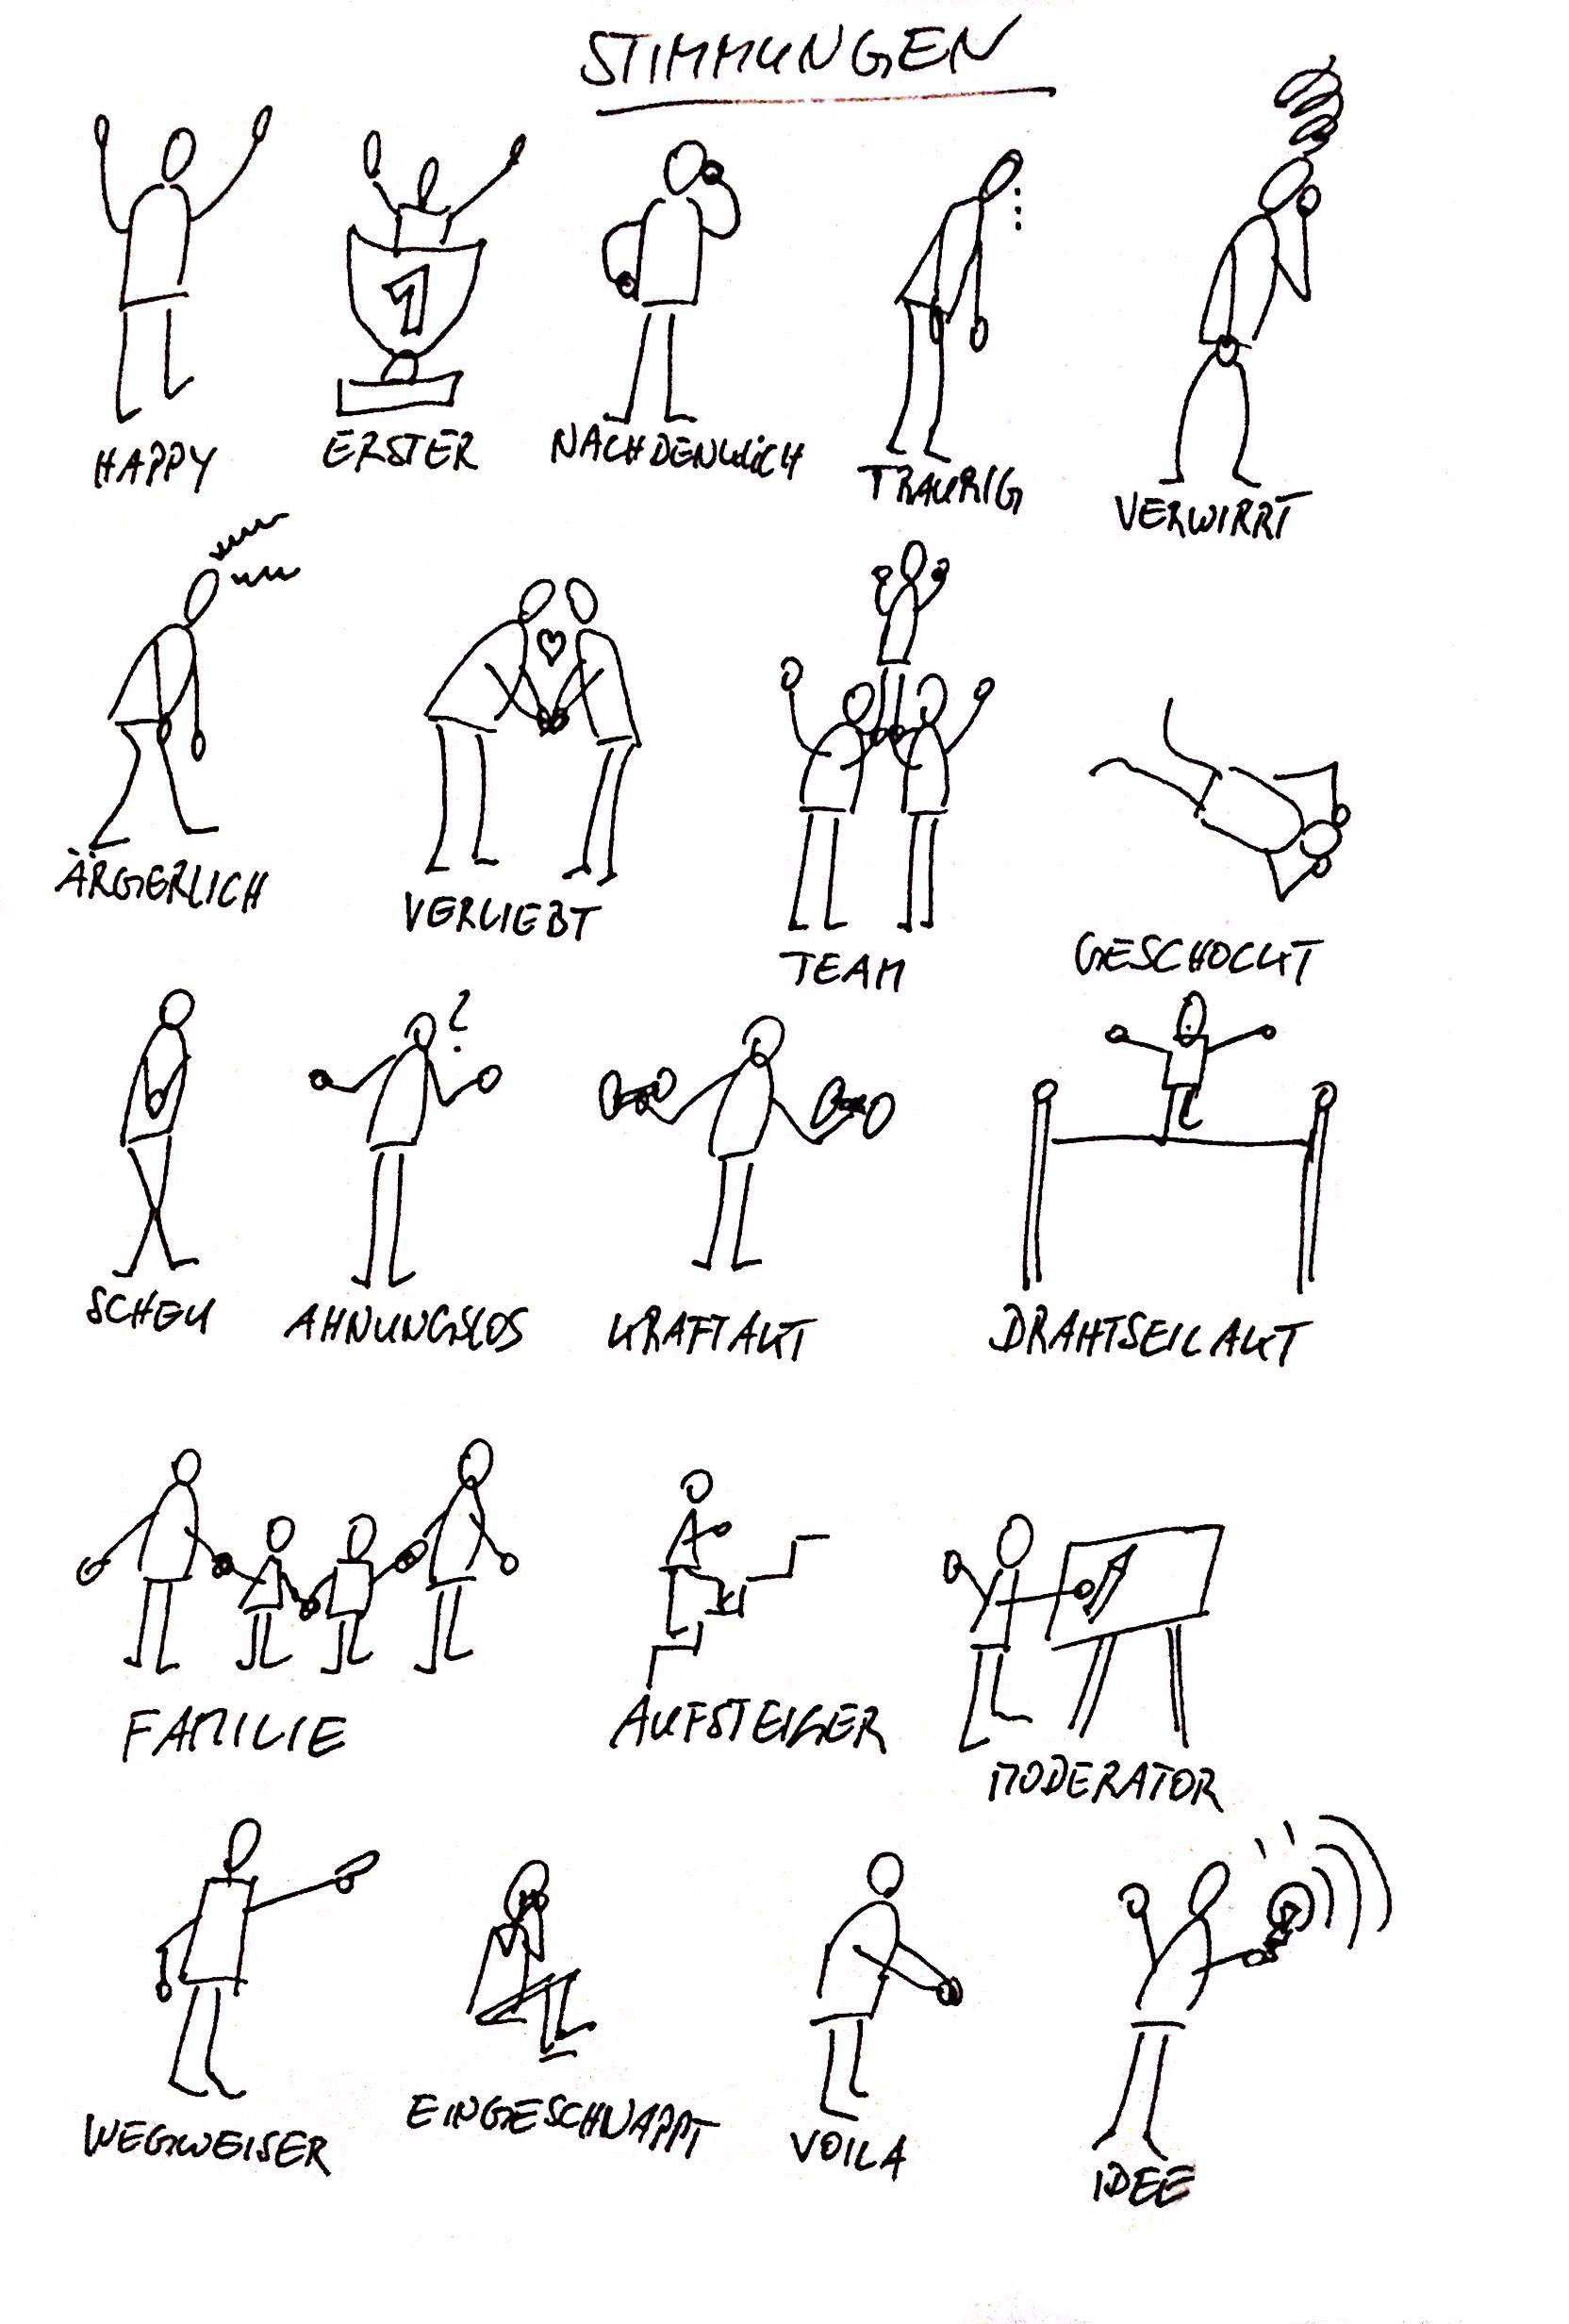 STIMMUNGEN
HAPPY
ERSTER
1
NACHDENKLICH
TRAURIG
VERWIRRT
ÄRGERLICH
VERLIEBT
TEAM
GESCHOCKT
SCHEU
?
AHNUNGSLOS
KRAFTAKT
DRAHTSEILAKT
FAMILIE
AUFSTEIGER
MODERATOR
WEGWEISER
EINGESCHNAPPT
VOILA
IDEE